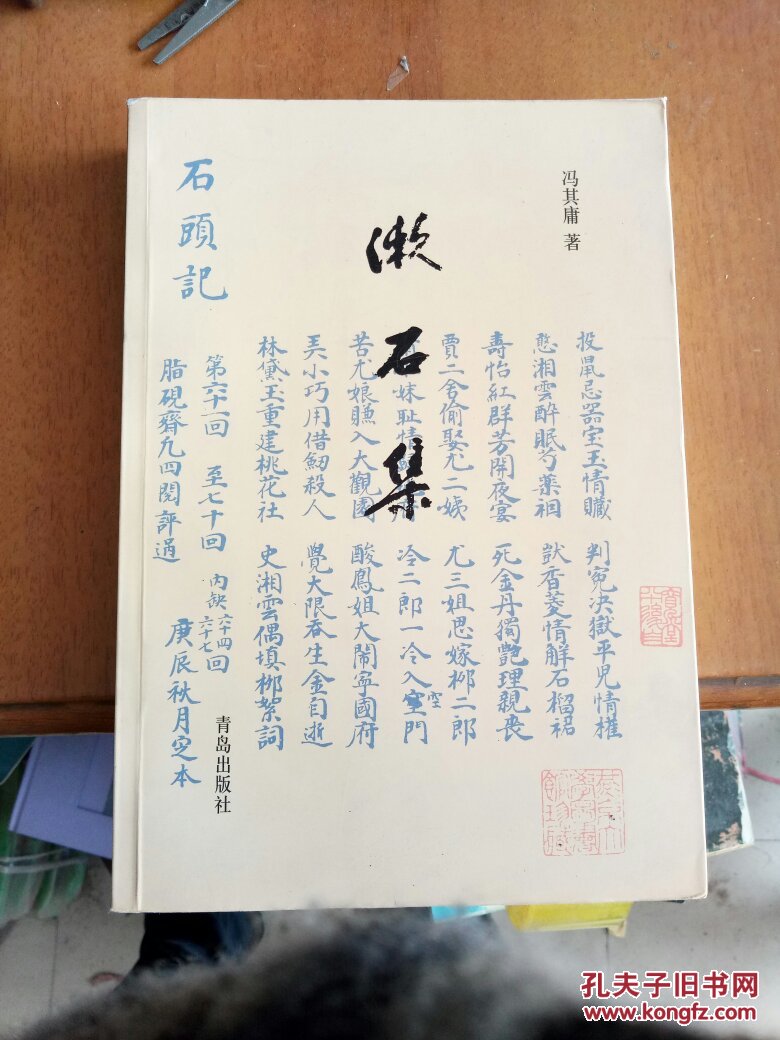 冯其庸 著
漱石集
投鼠忌器宝玉情贓 判冤决獄平兒情權
憨湘雲醉眠芍藥裀 獃香菱情解石榴裙
壽怡紅群芳開夜宴 死金丹獨艷理親喪
賈二舍偷娶尤二姨 尤三姐思嫁柳二郎
妹耻情 冷二郎一冷入空門
苦尤娘賺入大觀園 酸鳳姐大鬧寧國府
弄小巧用借釼殺人 覺大限吞生金自逝
林黛玉重建桃花社 史湘雲偶填柳絮詞
第六十一回 至七十回 内缺六十四 六十七回
脂硯齋凢四閱評過 庚辰秋月定本
石頭記
青岛出版社
孔夫子旧书网
www.kongfz.com